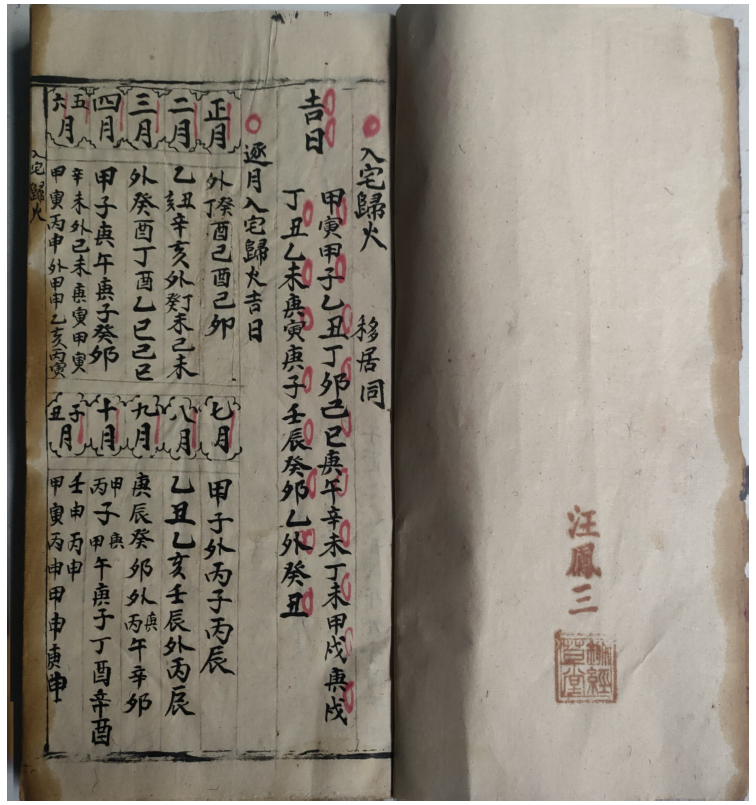 汪鳳三
入宅歸火　移居同
吉日
甲寅甲子乙丑丁卯己巳庚午辛未丁未甲戌庚戌
丁丑乙未庚寅庚子壬辰癸卯乙外癸丑
逐月入宅歸火吉日
正月
外癸丁酉己酉己卯
二月
乙丑辛亥外癸丁未己未
三月
外癸酉丁酉乙巳己巳
四月
甲子庚午庚子癸卯
五月
辛未外己未庚寅甲寅
六月
甲寅丙申外甲申乙亥丙寅
七月
甲子外丙子丙辰
八月
乙丑乙亥壬辰外丙辰
九月
庚辰癸卯外丙庚午辛卯
十月
丙甲子甲庚午庚子丁酉辛酉
子月
壬申丙申
丑月
甲寅丙申甲申庚申
入宅歸火